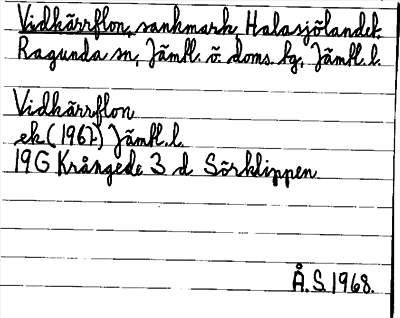 Vidkärrflon, sankmark, Halasjölandet,
Ragunda sn, Jämtl. ö. doms. bg, Jämtl. l.
Vidkärrflon
ek (1967) Jämtl. l.
19G Krångede 3 d Sörklippen
Å.S. 1968.